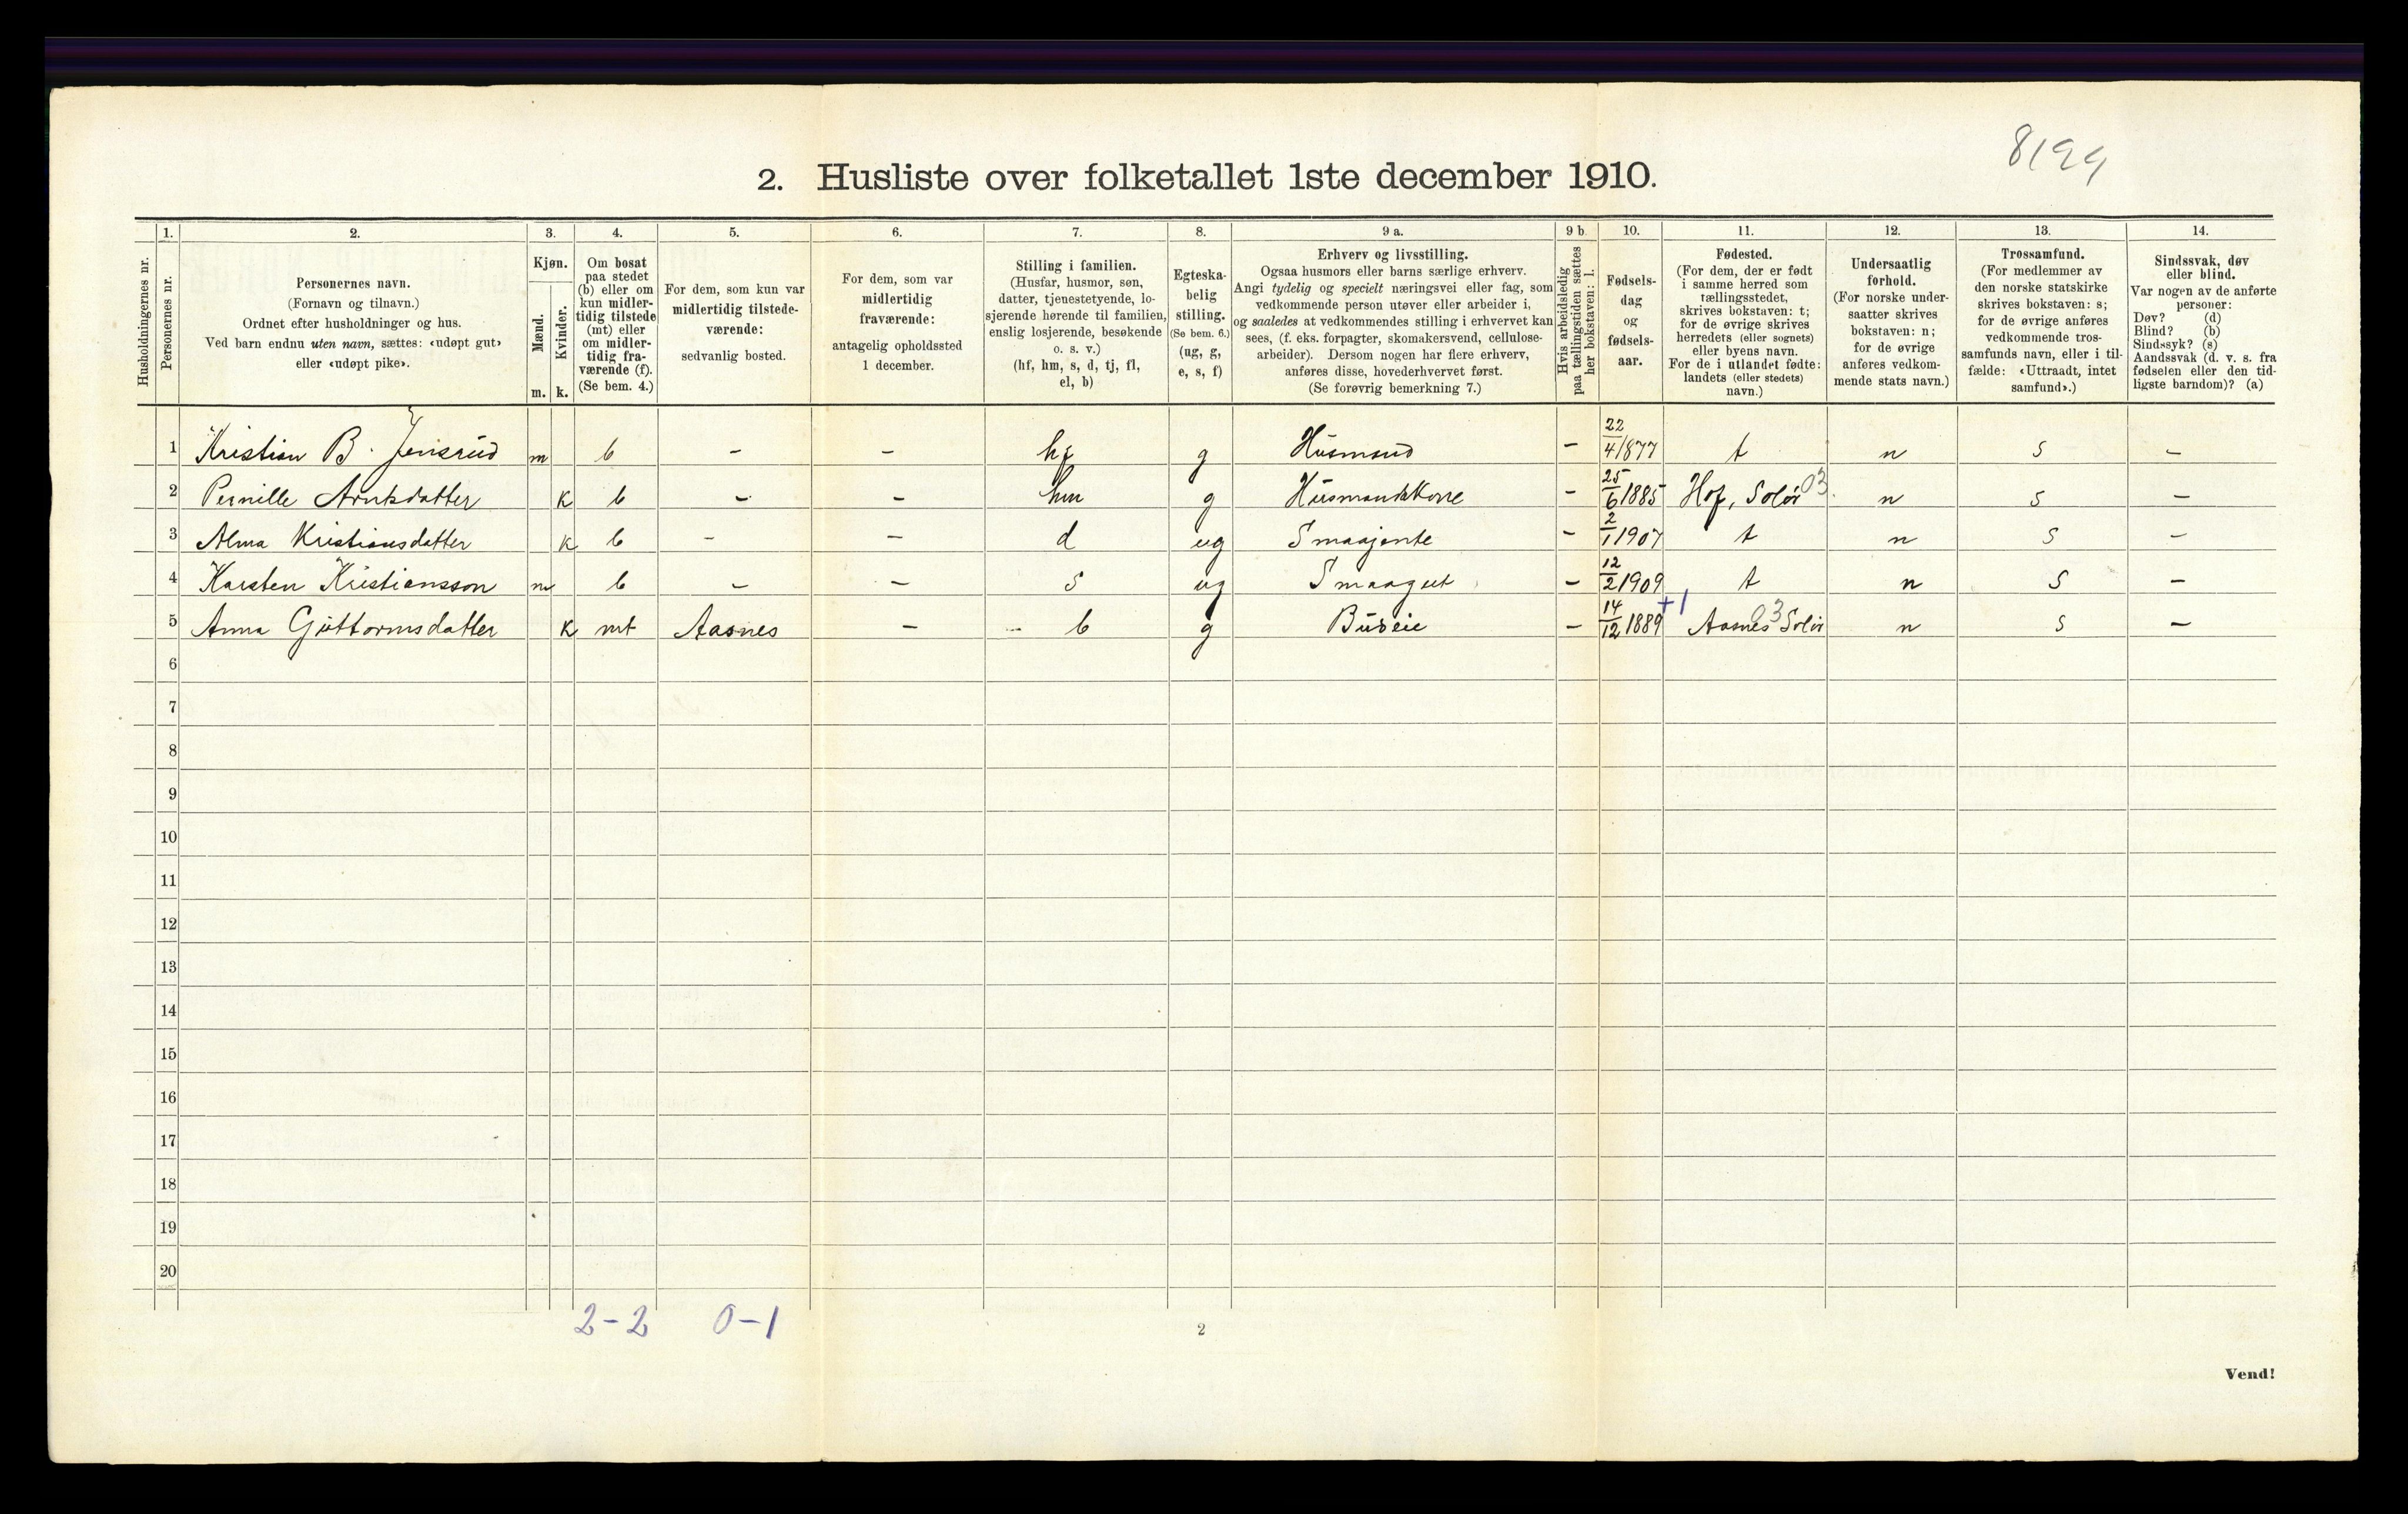 8199
2. Husliste over folketallet 1ste december 1910.
Husholdningernes nr.
1. Personernes nr.
2. Personernes navn.
(Fornavn og tilnavn.)
Ordnet efter husholdninger og hus.
Ved barn endnu uten navn, sættes: «udøpt gut»
eller «udøpt pike».
3. Kjøn.
Mænd. m.
Kvinder. k.
4. Om bosat
paa stedet
(b) eller om
kun midler-
tidig tilstede
(mt) eller
om midler-
tidig fra-
værende (f).
(Se bem. 4.)
5. For dem, som kun var
midlertidig tilstede-
værende:
sedvanlig bosted.
6. For dem, som var
midlertidig
fraværende:
antagelig opholdssted
1 december.
7. Stilling i familien.
(Husfar, husmor, søn,
datter, tjenestetyende, lo-
sjerende hørende til familien,
enslig losjerende, besøkende
o. s. v.)
(hf, hm, s, d, tj, fl,
el, b)
8. Egteska-
belig
stilling.
(Se bem. 6.)
(ug, g,
e, s, f)
9 a. Erhverv og livsstilling.
Ogsaa husmors eller barns særlige erhverv.
Angi tydelig og specielt næringsvei eller fag, som
vedkommende person utøver eller arbeider i,
og saaledes at vedkommendes stilling i erhvervet kan
sees, (f. eks. forpagter, skomakersvend, cellulose-
arbeider). Dersom nogen har flere erhverv,
anføres disse, hovederhvervet først.
(Se forøvrig bemerkning 7.)
9 b. Hvis arbeidsledig
paa tællingstiden sættes
her bokstaven: l.
10. Fødsels-
dag
og
fødsels-
aar.
11. Fødested.
(For dem, der er født
i samme herred som
tællingsstedet,
skrives bokstaven: t;
for de øvrige skrives
herredets (eller sognets)
eller byens navn.
For de i utlandet fødte:
landets (eller stedets)
navn.)
12. Undersaatlig
forhold.
(For norske under-
saatter skrives
bokstaven: n;
for de øvrige
anføres vedkom-
mende stats navn.)
13. Trossamfund.
(For medlemmer av
den norske statskirke
skrives bokstaven: s;
for de øvrige anføres
vedkommende tros-
samfunds navn, eller i til-
fælde: «Uttraadt, intet
samfund».)
14. Sindssvak, døv
eller blind.
Var nogen av de anførte
personer:
Døv? (d)
Blind? (b)
Sindssyk? (s)
Aandssvak (d. v. s. fra
fødselen eller den tid-
ligste barndom)? (a)
1 Kristian B. Jensrud m b - - hf g Husmand - 22/4 1877 t n s -
2 Pernille Arntsdatter k b - - hm g Husmandskone - 25/6 1885 Hof, Solør 03. n s -
3 Alma Kristiansdatter k b - - d ug Smaajente - 2/1 1907 t n s -
4 Karsten Kristiansson m b - - s ug Smaagut - 12/2 1909 t n s -
5 Anna Guttormsdatter k mt Aasnes - - b g Buseie - 14/12 1889 +1 Aasnes Solør 03 n s -
6
7
8
9
10
11
12
13
14
15
16
17
18
19
20
2-2 0-1
2
Vend!